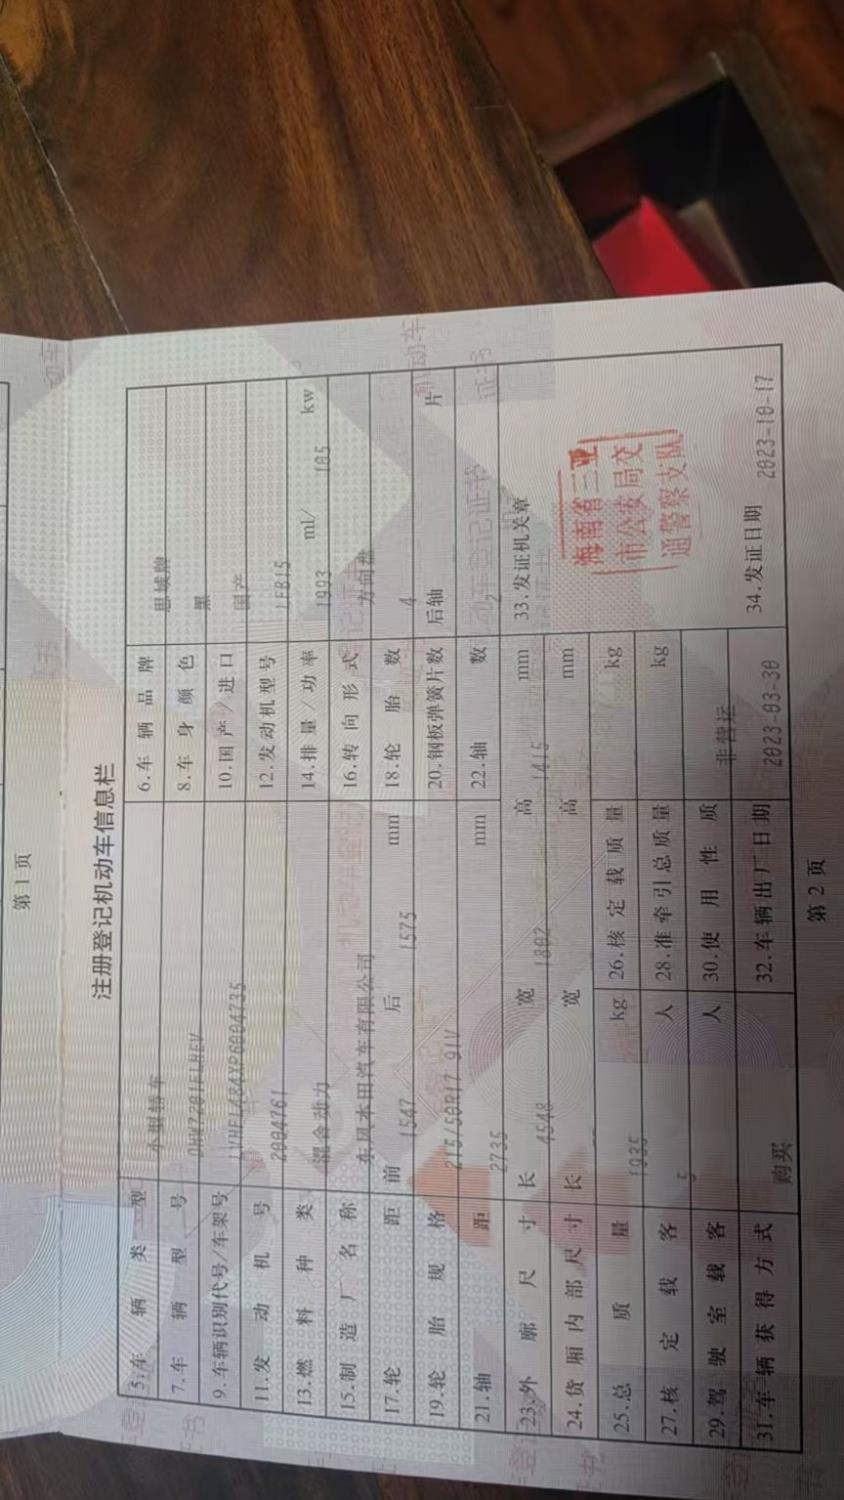 第1页
注册登记机动车信息栏
5.车辆类型 小型轿车 6.车辆品牌 思域牌
7.车辆型号 DHW7201FLHEV 8.车身颜色 黑
9.车辆识别代号/车架号 LVHFL484XP6004735 10.国产/进口 国产
11.发动机号 2004761 12.发动机型号 LFB15
13.燃料种类 混合动力 14.排量/功率 1993 ml/ 105 kw
15.制造厂名称 东风本田汽车有限公司 16.转向形式 方向盘
17.轮距 前 1547 后 1575 mm 18.轮胎数 4
19.轮胎规格 215/50R17 91V 20.钢板弹簧片数 后轴 片
21.轴距 2735 mm 22.轴数 2
23.外廓尺寸 长 4548 宽 1802 高 1415 mm 33.发证机关章
24.货厢内部尺寸 长 宽 高 mm
海南省三亚
市公安局交
通警察支队
25.总质量 1935 kg 26.核定载质量 kg
27.核定载客 5 人 28.准牵引总质量 kg
29.驾驶室载客 人 30.使用性质 非营运
31.车辆获得方式 购买 32.车辆出厂日期 2023-03-30 34.发证日期 2023-10-17
第2页